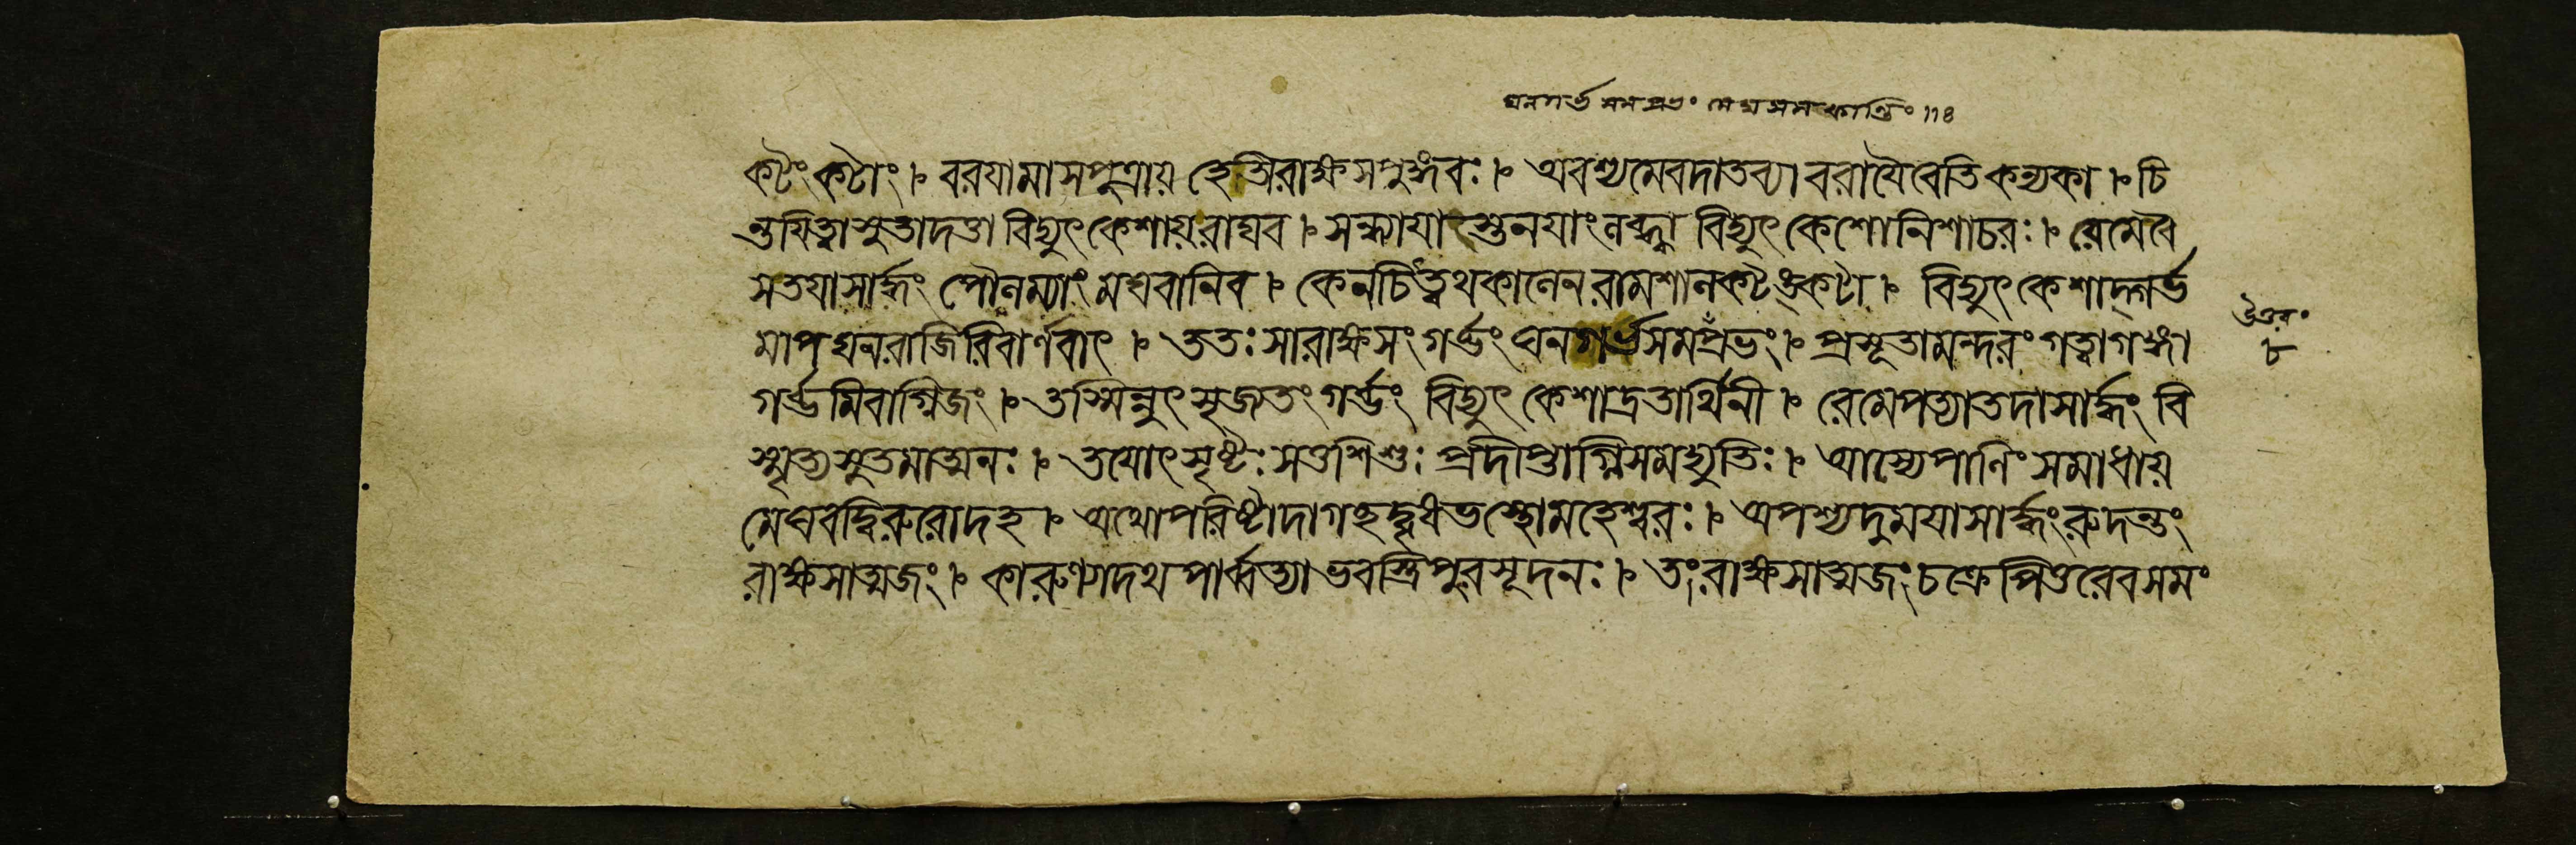 ঘনগর্ভসমপ্রভং মেঘসমকান্তিং ॥৪
কটংকটাং। বরযামাসপুত্রায় হেতিরাক্ষসপুঙ্গবঃ। অবশ্যমেবদাতব্যা বরাযৈবেতিকন্যকা। চি
ন্তযিত্বাসুতাদত্তা বিদ্যুৎকেশায়রাঘব। সন্ধ্যাযাস্তুনযাংলব্ধ্বা বিদ্যুৎকেশোনিশাচরঃ। রেমেবে
সতযাসার্দ্ধং পৌলম্যাং মঘবানিব। কেনচিত্ত্বথকালেন রামশালকটঙ্কটা। বিদ্যুৎকেশাদ্গর্ভ
মাপ ঘনরাজিরিবার্ণবাৎ। ততঃ সারাক্ষসং গর্ব্ভং ঘনগর্ভসমপ্রভং। প্রসূতামন্দরং গত্বাগঙ্গা
উত্তর৹
৮
গর্ব্ভমিবাগ্নিজং। তস্মিন্নুৎসৃজতং গর্ব্ভং বিদ্যুৎকেশাদ্রতার্থিনী। রেমেপত্যাতদাসার্দ্ধং বি
স্মৃত্যসুতমাত্মনঃ। তযোৎসৃষ্টঃ সতশিশুঃ প্রদিপ্তাগ্নিসমদ্যুতিঃ। আস্যেপানিং সমাধায়
মেঘবদ্বিরুরোদহ। অথোপরিষ্টাদাগচ্ছদ্বৃষভস্থোমহেশ্বরঃ। অপশ্যদুমযাসার্দ্ধংরুদন্তং
রাক্ষসাত্মজং। কারুণ্যদথ পার্ব্বত্যা ভবস্ত্রিপুরসূদনঃ। তং রাক্ষসাত্মজং চক্রেপিতরেবসমং